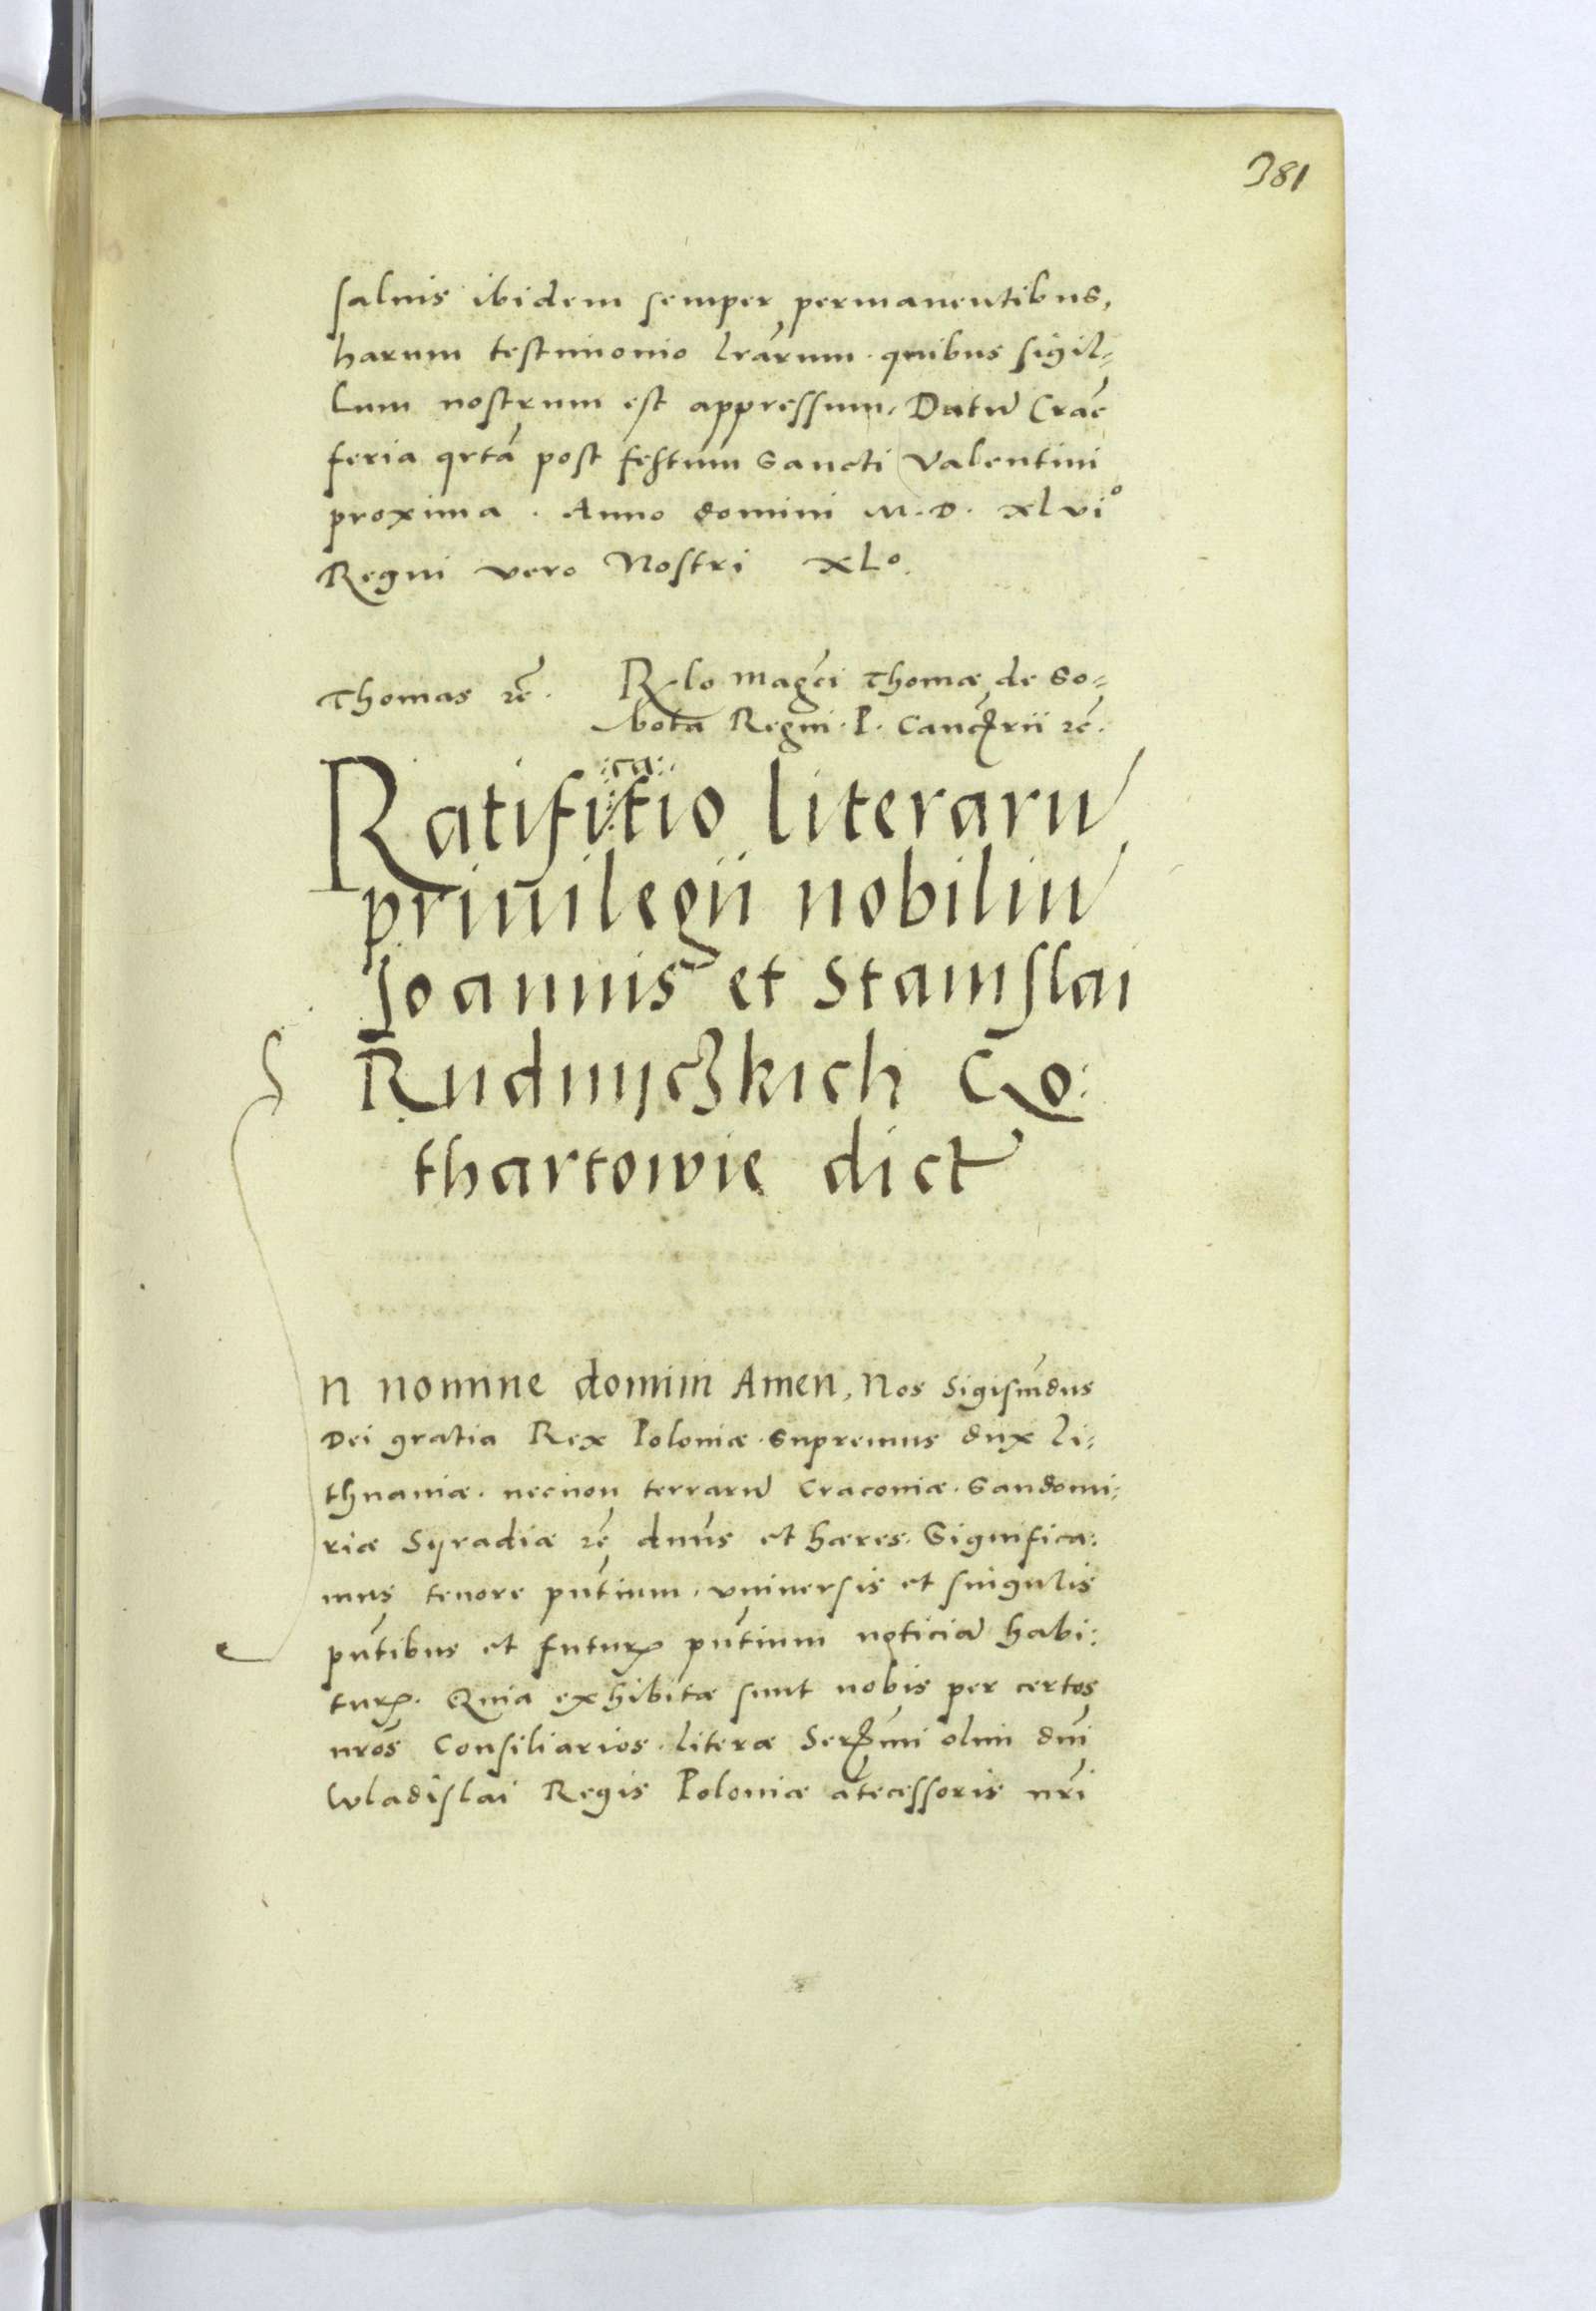 381
saluis ibidem semper permanentibus,
harum testimonio lr̃arum. quibus sigil=
lum nostrum est appressum, Datũ Crac̃
feria qrtã post festum Sancti Valentini
proxima. Anno domini M.D. xlviº
Regni vero Nostri XLº.
Thomas rc̃. Rlo magc̃i Thomæ de So=
bota Regni. P. Canc̃rii rc̃.
:ca:
Ratifitio literarũ
priuilegii nobiliũ
Joannis et Stanislai
Rudnyczkich Co:
thartowie dict
n nomine domini Amen, Nos Sigism̃dus
Dei gratia Rex Poloniæ. Supremus dux Li:
thuaniæ. necnon terrarũ Cracouiæ. Sandomi:
riæ Syradiæ rc̃ dnus et hæres. Significa:
mus tenore pñtium, vniuersis et singulis
pñtibus et futuꝝ pñtium noticiã habi:
tuꝝ. Quia exhibitæ sunt nobis per certos
nr̃os Consiliarios. literæ Serm̃i olim dñi
Wladislai Regis Poloniæ ãtecessoris nr̃i